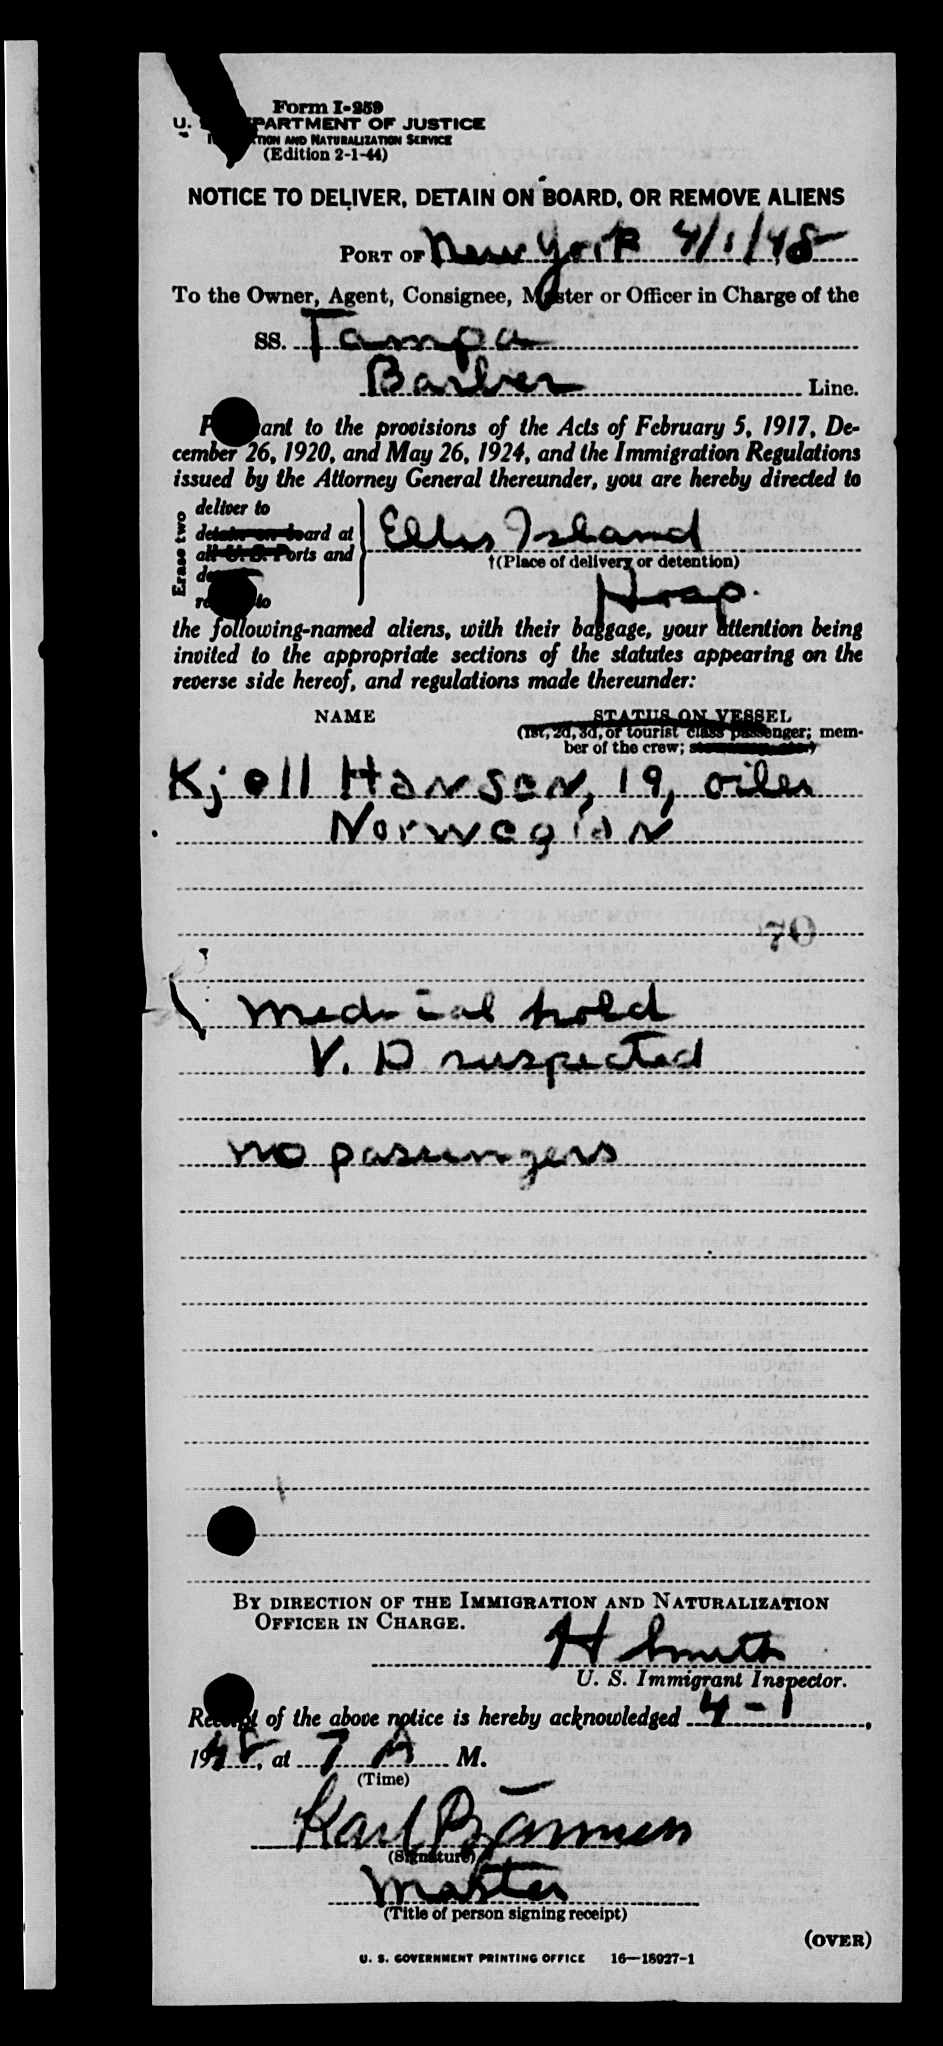 Form I-259
U. S. DEPARTMENT OF JUSTICE
IMMIGRATION AND NATURALIZATION SERVICE
(Edition 2-1-44)
NOTICE TO DELIVER, DETAIN ON BOARD, OR REMOVE ALIENS
PORT OF New York 4/1/48
To the Owner, Agent, Consignee, Master or Officer in Charge of the
SS. Tampa
Barber Line.
Pursuant to the provisions of the Acts of February 5, 1917, De-
cember 26, 1920, and May 26, 1924, and the Immigration Regulations
issued by the Attorney General thereunder, you are hereby directed to
Erase two
deliver to
detain on board at
all U. S. Ports and
Ellis Island
†(Place of delivery or detention)
Hosp.
the following-named aliens, with their baggage, your attention being
invited to the appropriate sections of the statutes appearing on the
reverse side hereof, and regulations made thereunder:
NAME STATUS ON VESSEL
(1st, 2d, 3d, or tourist class passenger; mem-
ber of the crew;
Kjell Hansen, 19, oiler
Norwegian
70
Medical hold
V. D suspected
no passengers
BY DIRECTION OF THE IMMIGRATION AND NATURALIZATION
OFFICER IN CHARGE.
H Smith
U. S. Immigrant Inspector.
Receipt of the above notice is hereby acknowledged 4-1,
1948, at 7 A M.
(Time)
Karl
(Signature)
Master
(Title of person signing receipt)
(OVER)
U. S. GOVERNMENT PRINTING OFFICE 16—18927-1